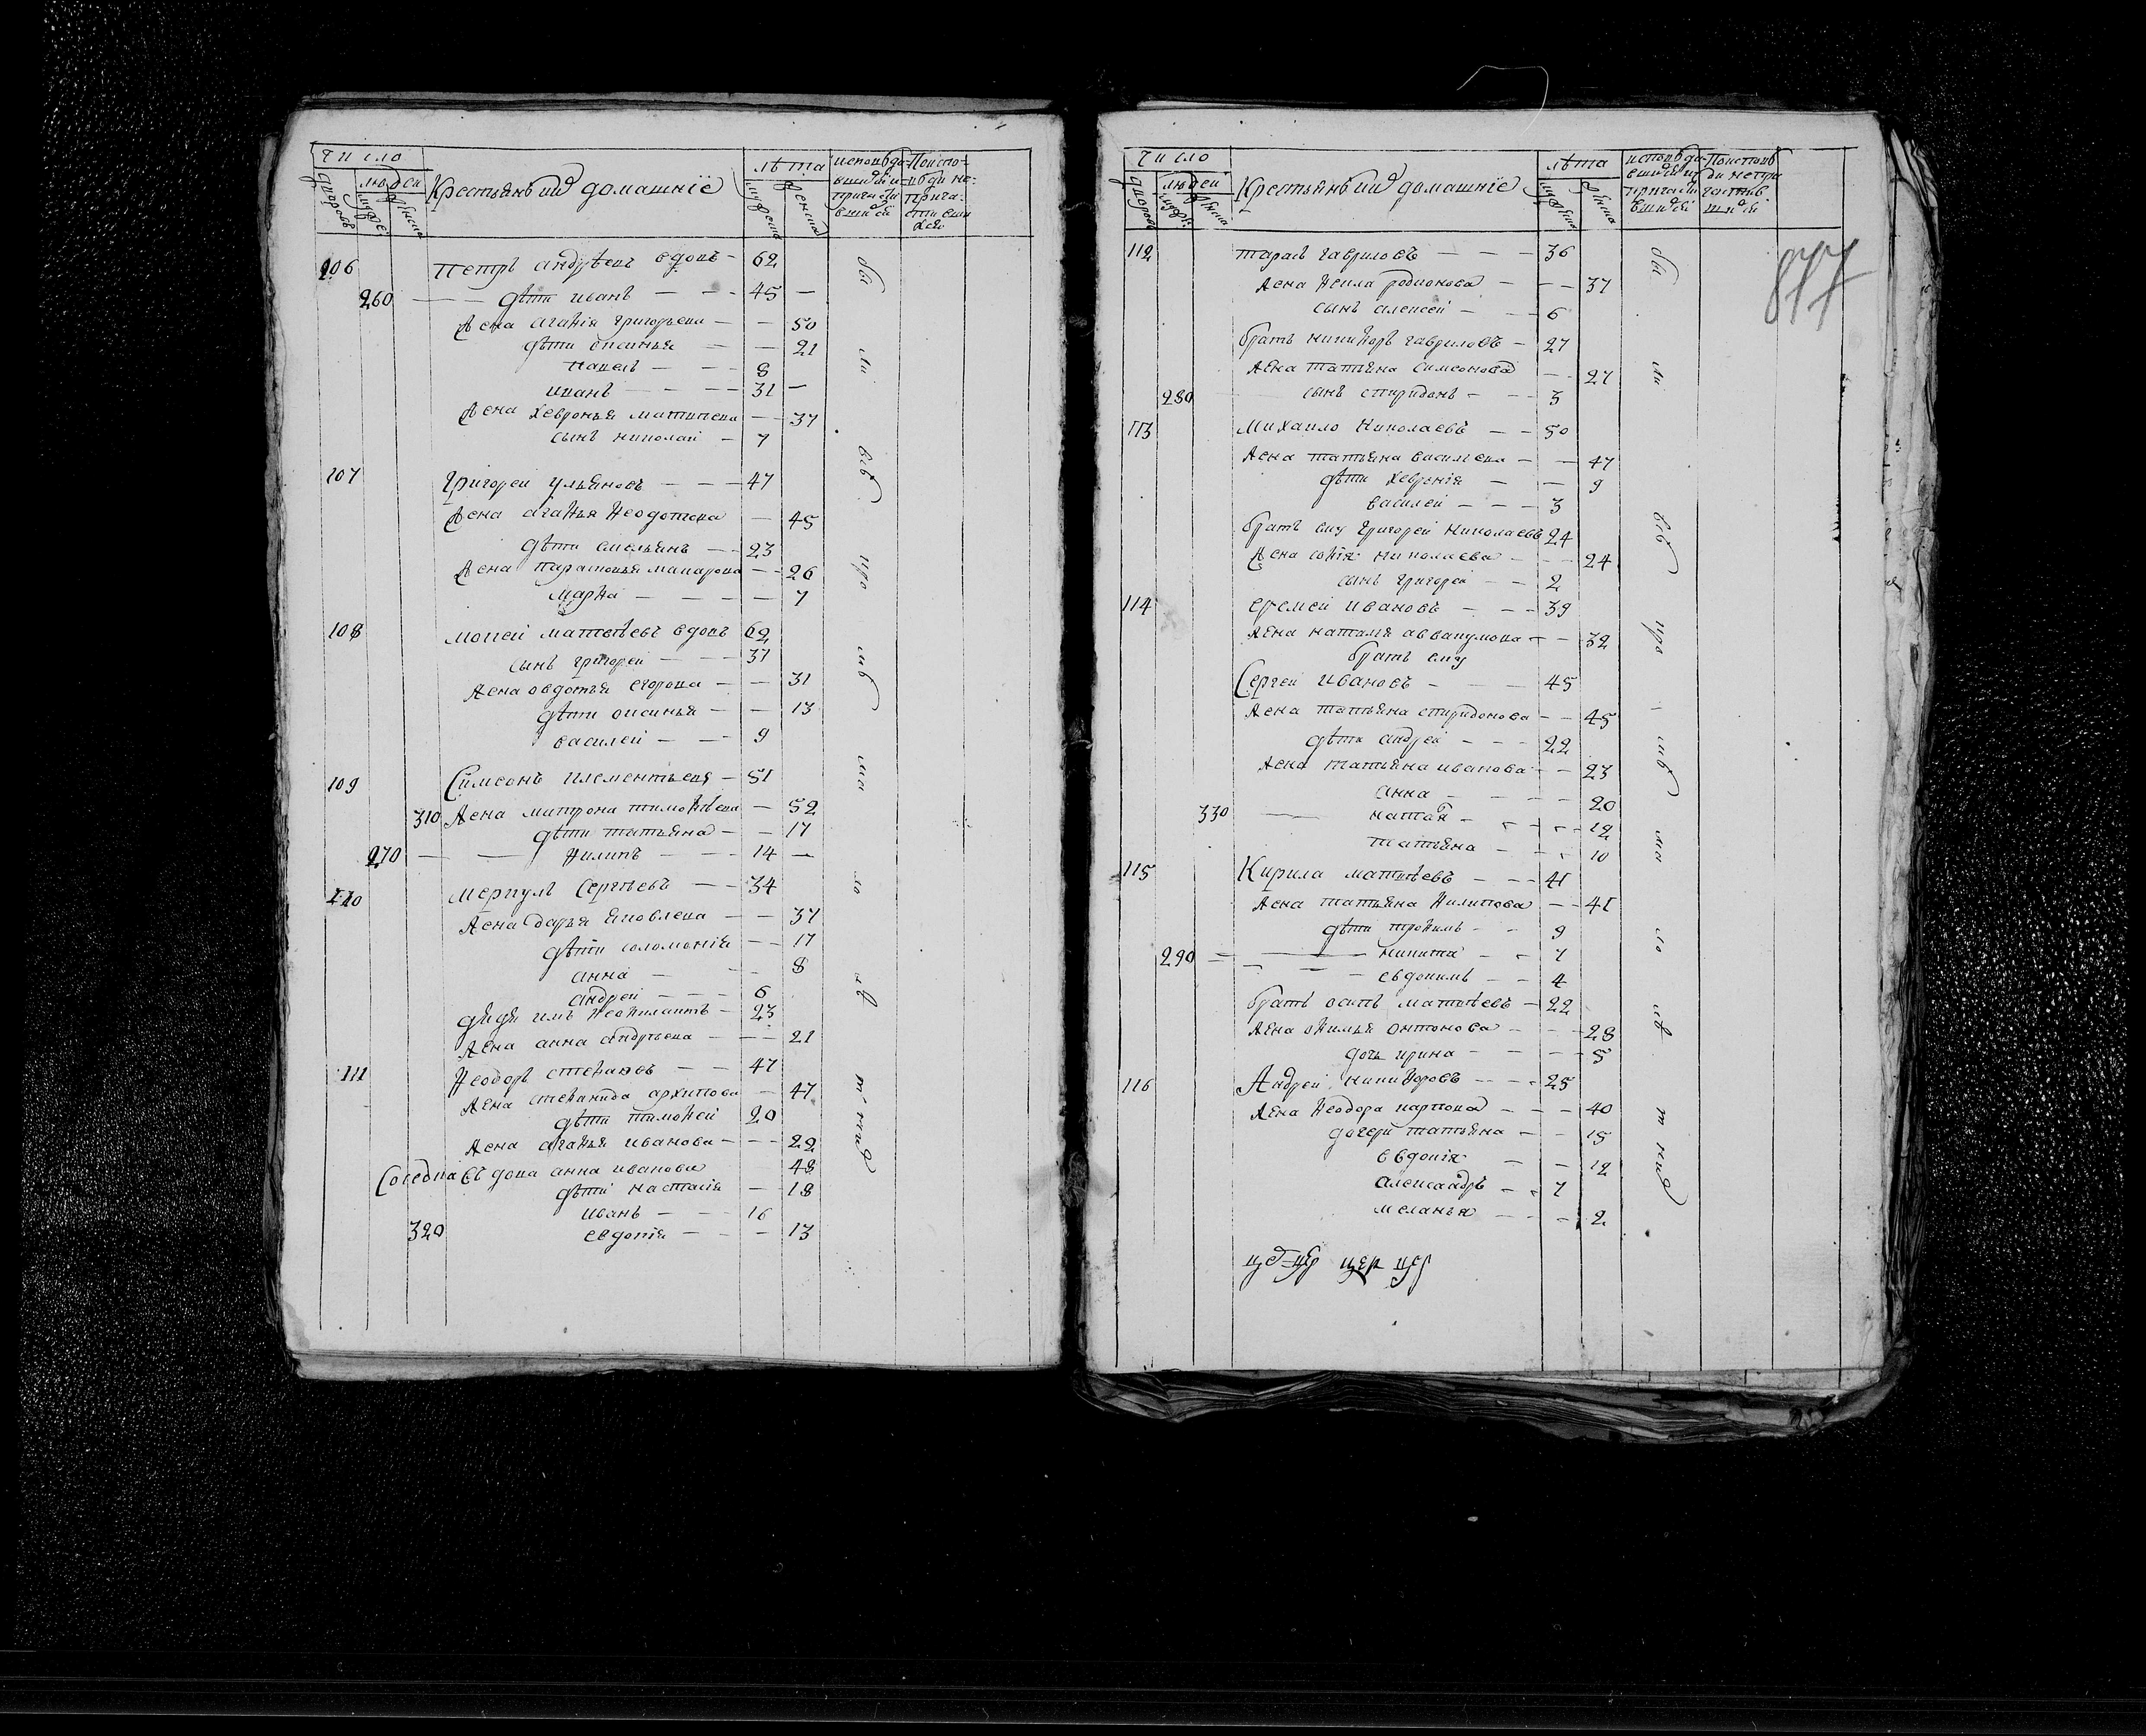 число
людей
дворовъ
Крестьяне ихъ домашніе
лѣта
106 Петръ андрѣевъ вдовъ — 62
260 — — дѣти иванъ — 45 —
Жена агаѳія григорьева — — 50
дѣти ксинья — — 21
павелъ — — 8
иванъ — — 31 —
Жена хевронья матвѣева — 37
сынъ николай — 7
107 Григореи ульяновъ — — 47
Жена агаѳья Ѳеодотова — 45
дѣти емельянъ — — 23
Жена парасковья макарова — — 26
марѳа — — — — 7
108 мокей матвѣевъ вдовъ 62
сынъ григореи — — 37
Жена овдотья егорова — — 31
дѣти оксинья — — 13
василеи — — 9
109 Симеонъ клементьевъ — 51
310 Жена матрона тимоѳѣева — 52
дѣти татьяна — — 17
270 — — Ѳилипъ — — 14 —
110 меркулъ Сергѣевъ — — 34
Жена дарья яковлева — — 37
дѣти соломонія — — 17
анна — — 8
андреи — — 6
дядя имъ Ѳеоѳилактъ — 23
Жена анна андрѣева — — 21
111 Ѳеодоръ стеѳановъ — — 47
Жена стеѳанида архипова — 47
дѣти тимоѳеи 20
Жена агаѳья иванова — — 22
Соседка вдова анна иванова 48
дѣти настасія — 18
иванъ — — 16
320 евдокія — — — 13
бы
ли
всѣ
число
людей
дворовъ
Крестьяне ихъ домашніе
лѣта
877
112 тарасъ гавриловъ — — — 36
Жена Ѳекла родионова — — — 37
сынъ алексеи — — 6
братъ никиѳоръ гавриловъ — 27
Жена татьяна симеонова — 27
280 сынъ спиридонъ — — 3
113 михаило николаевъ — — 50
Жена татьяна василева — — 47
дѣти хевронія — — 9
василеи — — — 3
братъ ему григореи николаевъ 24
Жена соѳія николаева — — — 24
сынъ григореи — — 2
114 еремеи ивановъ — — — 39
Жена наталя аввакумова — — 32
братъ ему
Сергеи ивановъ — — 45
Жена татьяна спиридонова — — 45
дѣти андреи — — — 22
Жена татьяна иванова — — 23
анна — — — — 20
330 — — — — 12
татьяна — — — 10
115 Кирила матвѣевъ — — — 41
Жена татьяна Ѳилипова — — 41
дѣти троѳимъ — — 9
290 — — никита — — 7
— — евдокимъ — — 4
братъ осипъ матвѣевъ — 22
Жена оѳимья онтонова — — — 28
дочь ирина — — — — 5
116 Андреи никиѳоровъ — — — 25
Жена Ѳеодора карпова — — — 40
дочери татьяна — — 15
евдокія — — 12
александръ — — 7
меланья — — — 2
бы
ли
всѣ